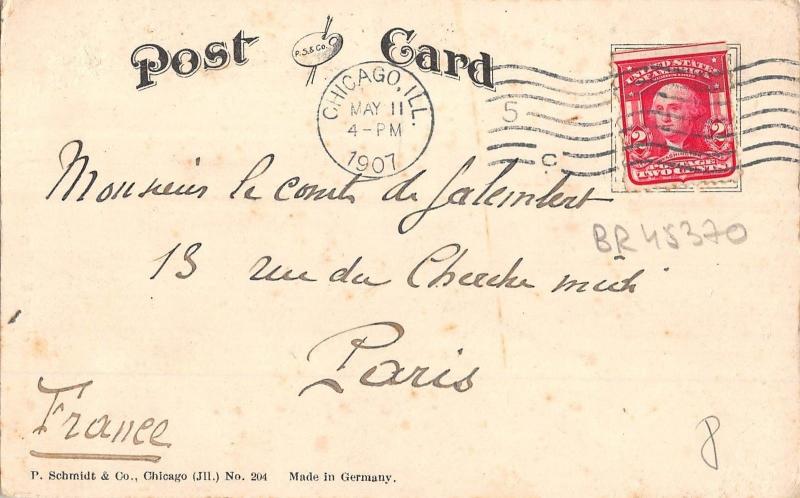 Post Card
P. S. & Co.
CHICAGO, ILL.
MAY 11
4-PM
1907
5
C.
UNITED STATES
OF AMERICA
2 2
POSTAGE
TWO CENTS
Monsieur le comte de Galembert
BR45370
13 rue du Cherche midi
Paris
France
8
P. Schmidt & Co., Chicago (Jll.) No. 204 Made in Germany.